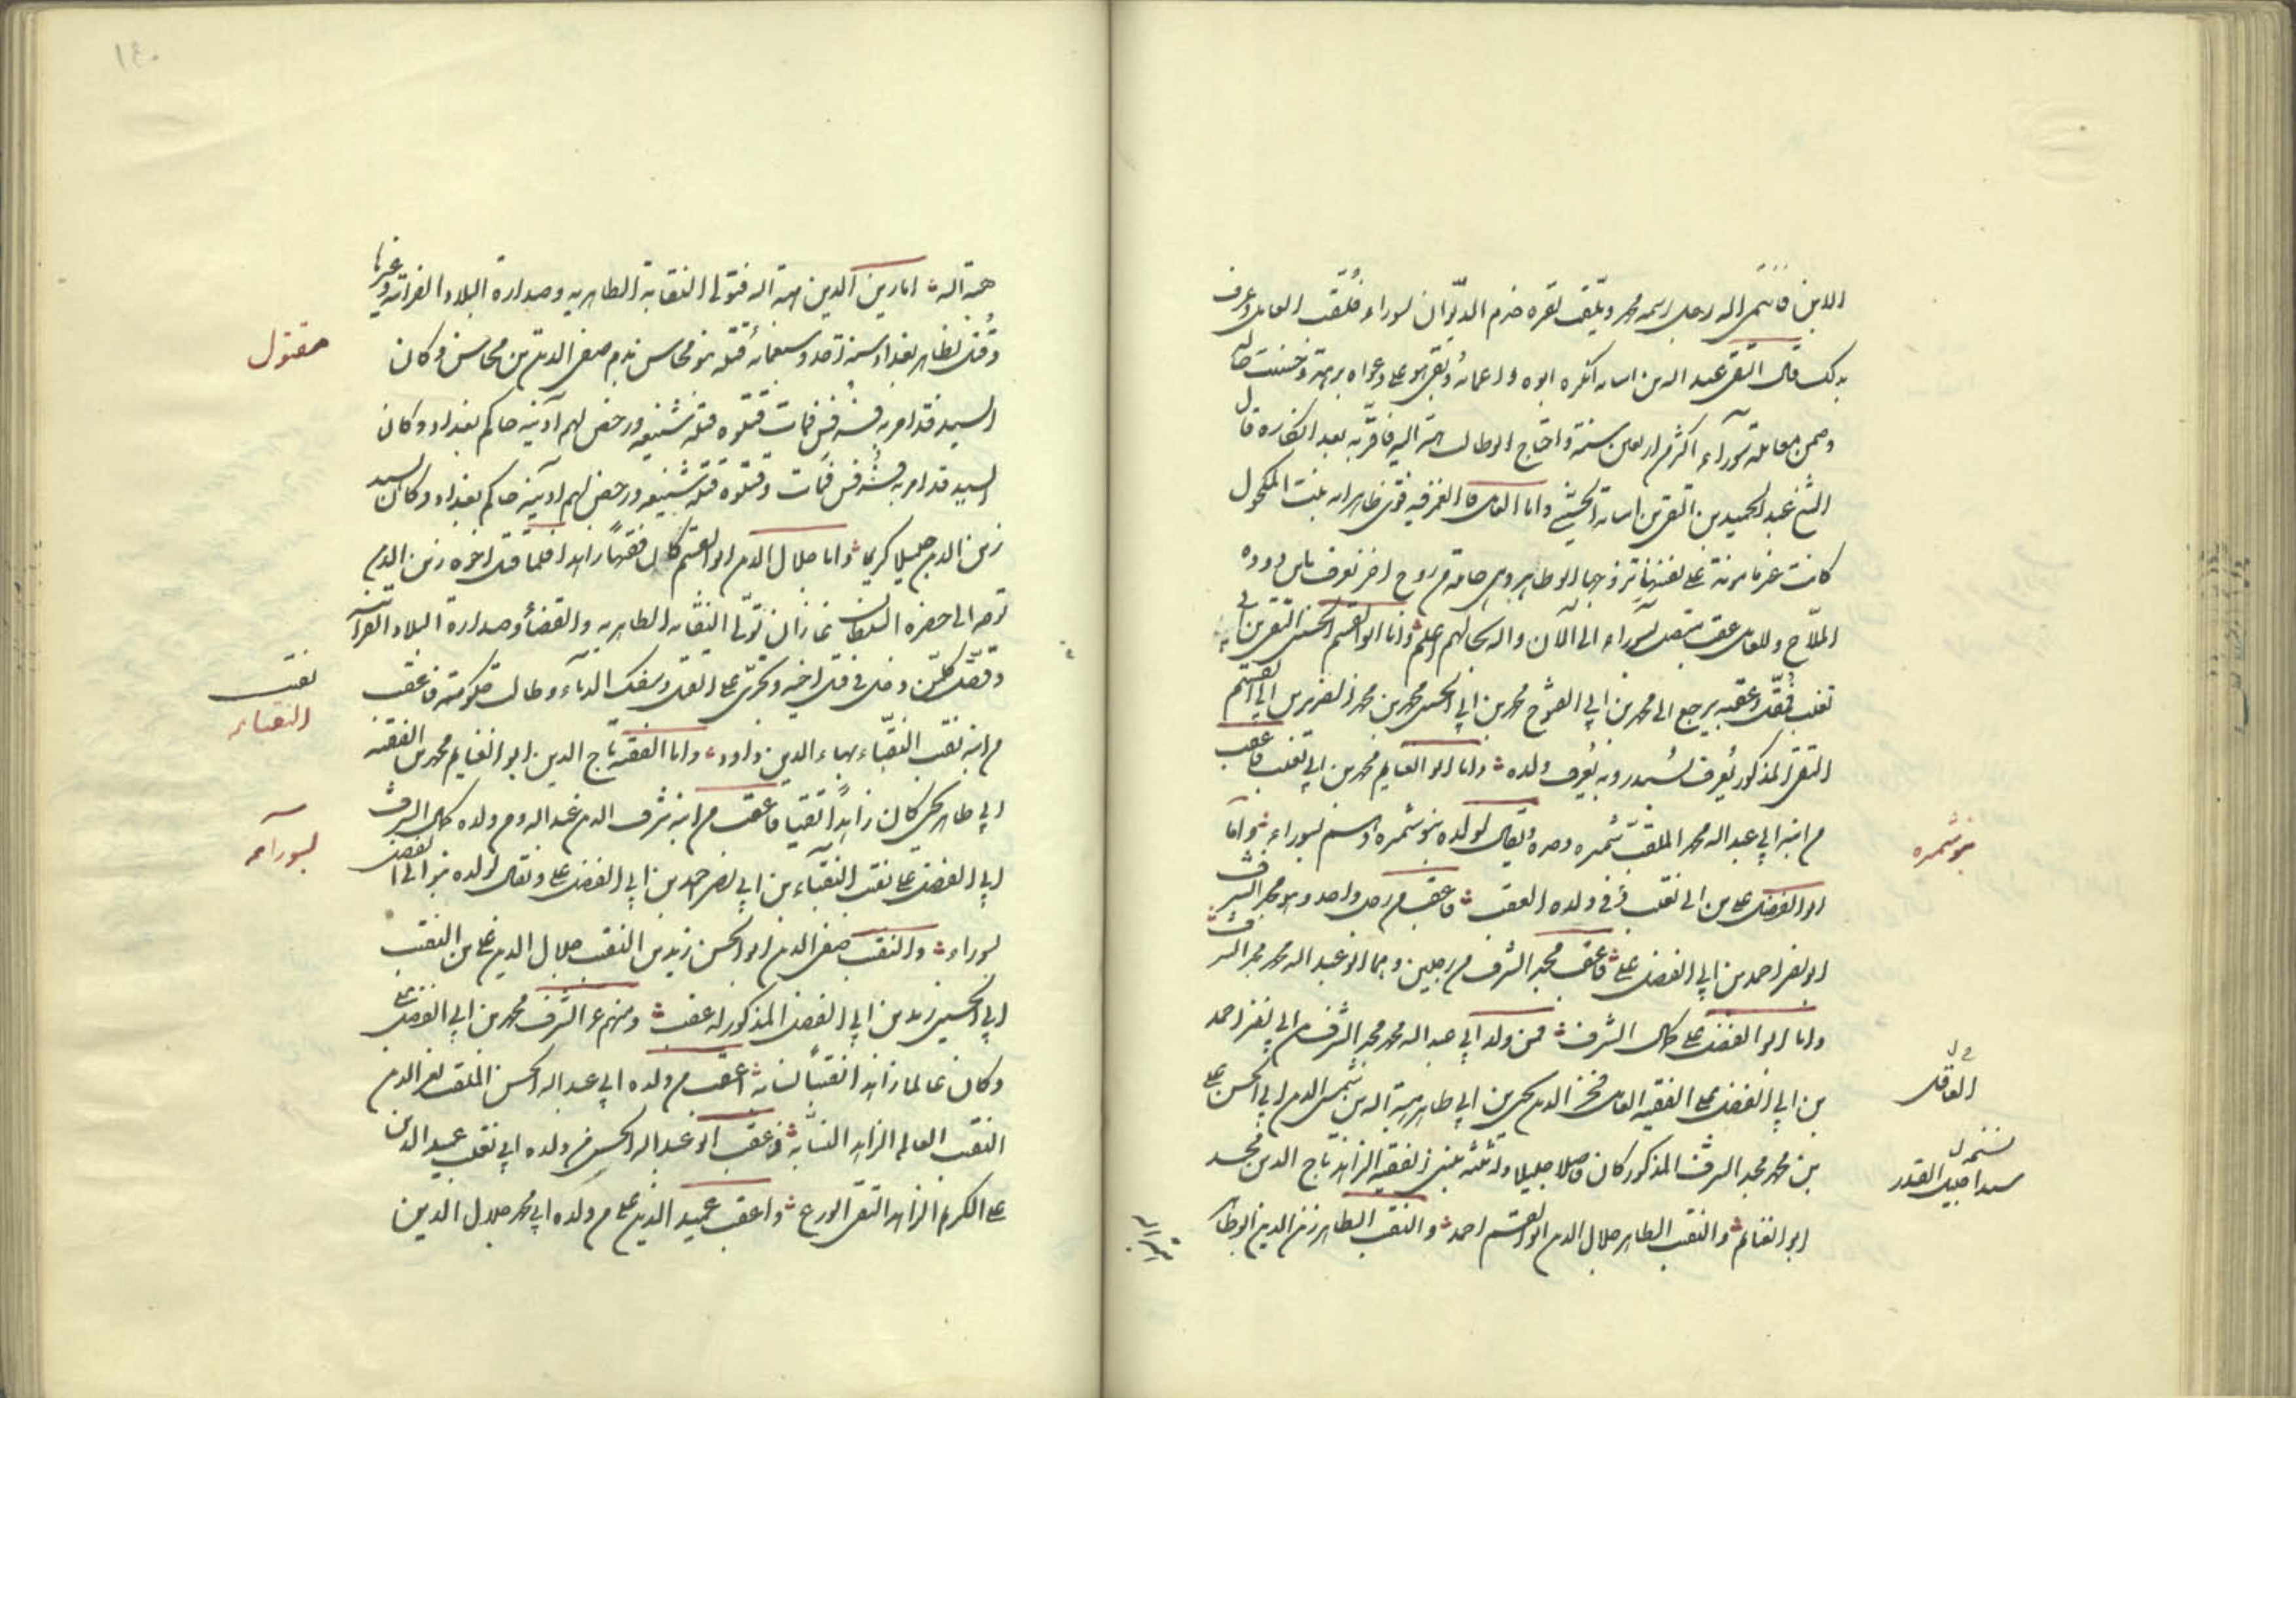 الابن فانتمى اليه رجل اسمه محمد ويلقب خدم الديوان بسوراء فلقب العامل وعرف
بذلك قال التقي عبد الله بن اسامه انكره ابوه واعمامه وبقي هو على دعواه برهة وحسنت حاله
وضمن معاملة سوراء اكثر من اربعين سنة واحتاج ابو طالب هبة اليه فاقر به بعد انكاره قال
الشيخ عبد الحميد بن التقي بن اسامة الحسيني واما العامل فالغمز فيه قوي ظاهر امه بنت المكحول
كانت غير مامونة على نفسها تزوجها ابو طاهر وهي حامل من زوج اخر يعرف بابن دوده
الملاح وللعامل عقب متصل بسوراء الى الآن والله سبحانه اعلم واما ابو القسم الحسن التقي بن ابي
تغلب فعقبه يرجع الى محمد بن ابي الفتوح محمد بن ابي الحسن محمد بن محمد الضرير بن ابي القسم
التقي المذكور يعرف بسدره وبه يعرف ولده واما ابو الغنايم محمد بن ابي تغلب فاعقب
من ابنه ابي عبد الله محمد الملقب شمره وحده ويقال لولده بنو شمره وهم بسوراء واما
ابو الفضل علي بن ابي تغلب ففي ولده العقب فاعقب من رجل واحد وهو مجد الشرف
ابو نصر احمد بن ابي الفضل علي فاعقب مجد الشرف من رجلين وهما ابو عبد الله محمد مجد الشرف
واما ابو الفضل علي كمال الشرف فمن ولد ابي عبد الله محمد مجد الشرف بن ابي نصر احمد
بن ابي الفضل علي الفقيه العامل فخر الدين يحيى بن ابي طاهر هبة الله بن شمس الدين ابي الحسن علي
بن محمد مجد الشرف المذكور كان فاضلا جليلا وله ثلثه بنين الفقيه الزاهد تاج الدين محمد
ابو الغنايم والنقيب الطاهر جلال الدين ابو القسم احمد والنقيب الطاهر زين الدين ابو طاهر
بنو شمره
العاقل
سيدا جليل القدر
١٤٠
هبة الله اما زين الدين هبة الله فتولى النقابة الطاهريه وصدارة البلاد الفراتيه وغيرها
وقتل بظاهر بغداد سنة احد وسبعمائه قتله بنو محاسن بدم صفي الدين بن محاسن وكان
السيد قد امر به فرفس فمات وقتلوه قتلة شنيعه ورخص لهم آدينه حاكم بغداد وكان
السيد قد امر به فرفس فمات وقتلوه قتلة شنيعه ورخص لهم ادينه حاكم بغداد وكان السيد
زين الدين جليلا كريما واما جلال الدين ابو القسم كان فقيها زاهدا فلما قتل اخوه زين الدين
توجه الى حضرة السلطان غازان وتولى النقابه الطاهريه والقضاء وصدارة البلاد الفراتيه
وقتل كل من دخل في قتل اخيه وتجرى على القتل وسفك الدماء وطالت حكومته فاعقب
من ابنه نقيب النقباء بهاء الدين داود واما الفقيه تاج الدين ابو الغنايم محمد بن الفقيه
ابي طاهر يحيى كان زاهدا تقيا فاعقب من ابنه شرف الدين عبد الله ومن ولده كمال الشرف
ابي الفضل علي نقيب النقباء بن ابي نصر احمد بن ابي الفضل علي ويقال لولده بنو ابي الفضل
بسوراء والنقيب صفي الدين ابو الحسن زيد بن النقيب جلال الدين علي بن النقيب
ابي الحسين زيد بن ابي الفضل المذكور له عقب ومنهم عز الشرف محمد بن ابي الفضل علي
وكان عالما زاهدا نقيبا نسابة اعقب من ولده ابي عبد الله الحسن الملقب بعز الدين
النقيب العالم الزاهد النسابة فاعقب ابو عبد الله الحسن من ولده ابي تغلب عميد الدين
علي الكريم الزاهد التقي الورع واعقب عميد الدين علي من ولده ابي محمد جلال الدين
مقتول
نقيب
النقباء
بسوراء